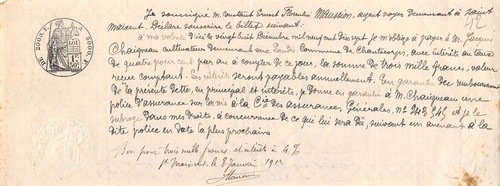 Je soussigné M. Constant Ernest Florentin Maussion, agent voyer demeurant à Saint
Maixent. Déclare souscrire le billet suivant.
à ma volonté d'ici le vingt huit Décembre mil neuf cent dix sept. Je m'oblige à payer à M. Jacques
Chaigneau cultivateur demeurant aux Commune de Chantecorps, avec intérêts au taux
de quatre pour cent par an à compter de ce jour, la somme de trois mille francs, valeur
reçue comptant. Les intérêts seront payables annuellement. En garantie du remboursement
de la présente dette, en principal et intérêts, je donne en garantie à M. Chaigneau une
police d'assurance sur la vie à la Cie des assurances Générales, No et je le
subroge dans mes droits, à concurrence de ce qui lui sera dû, suivant un avenant à la
dite police en date la plus prochaine
Bon pour trois mille francs et intérêt à 4 %
St Maixent le 8 Janvier
Maussion
DE 2000 F. À 3000 F.